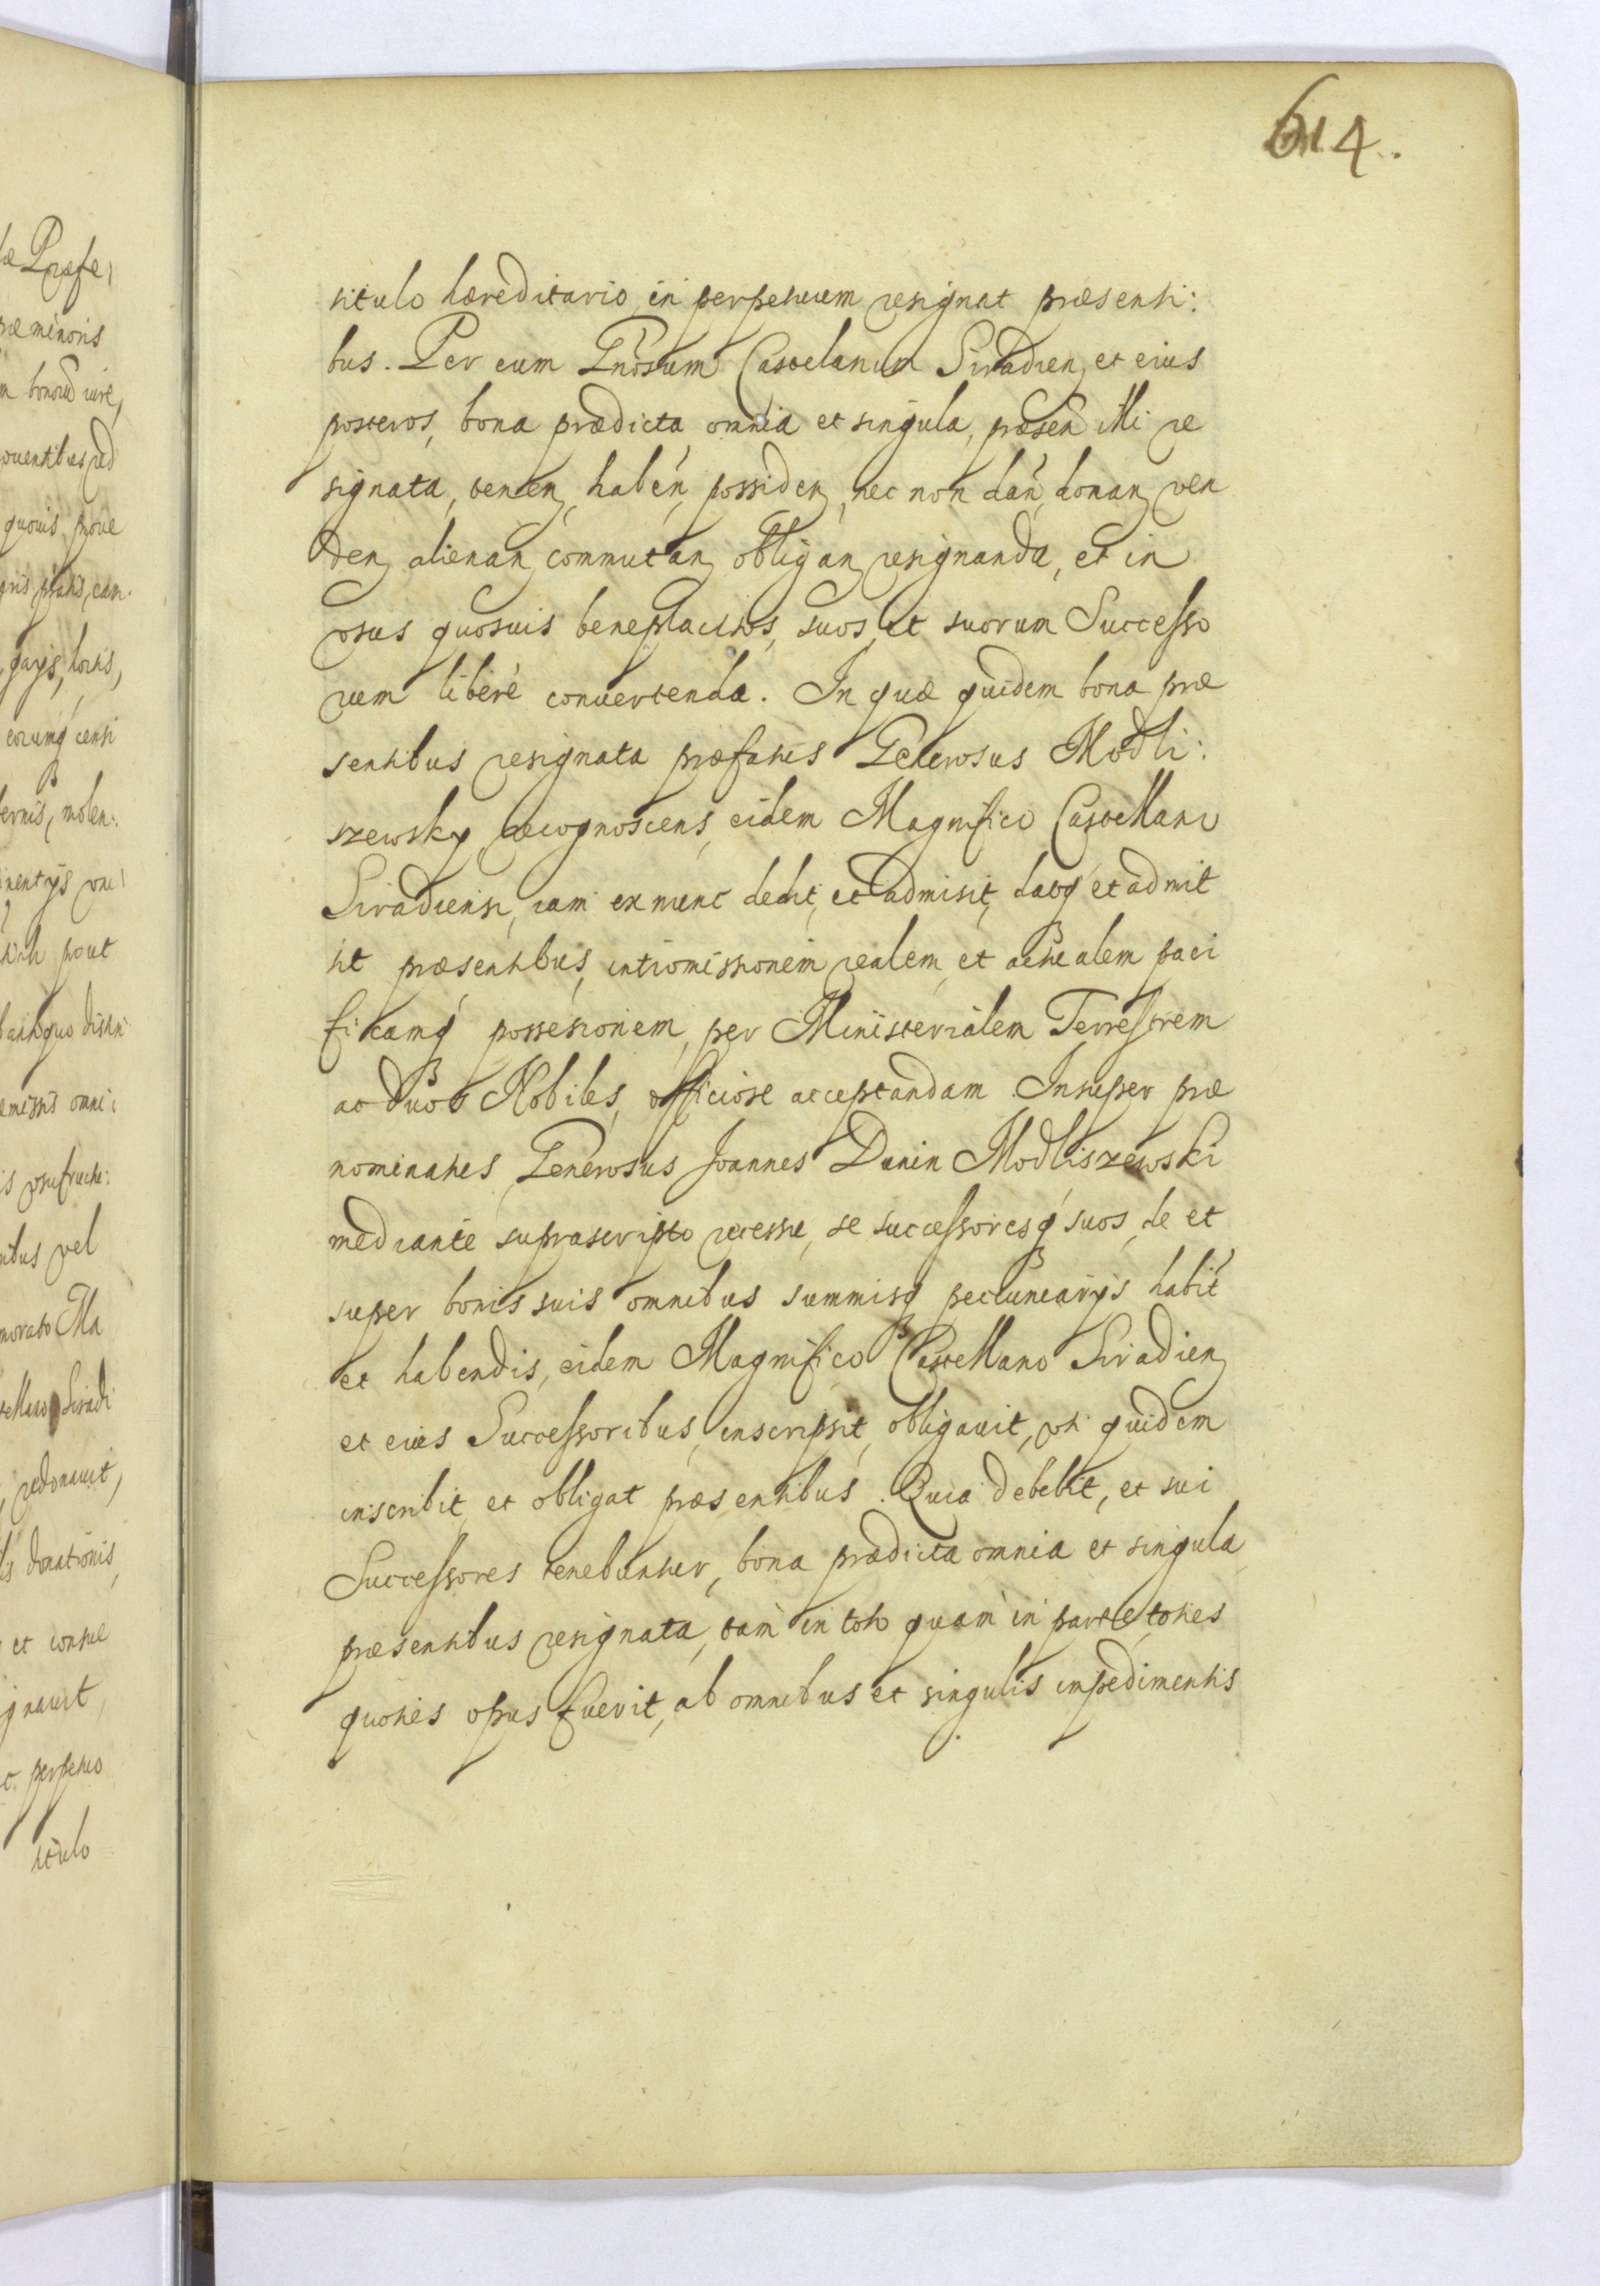 614.
titulo hæreditario in perpetuum resignat præsenti:
bus. Per eum Gnosum Castelanum Siradien, et eius
posteros, bona prædicta omnia et singula, præsen illi re
signata, tenen, haben, possiden, nec non dan, donan, ven
den, alienan, commutan, obligan, resignanda, et in
usus quosuis beneplacitos, suos et suorum Successo
rum liberè conuertenda. In quæ quidem bona præ
sentibus resignata præfatus Generosus Modli:
szewsky recognoscens, eidem Magnifico Castellano
Siradiensi, iam ex nunc dedit, et admisit, datq et admit
tit præsentibus, intromissionem realem, et actualem paci
ficamq possesionem, per Ministerialem Terrestrem
ac duos Nobiles, officiose acceptandam. Insuper præ
nominatus Generosus Joannes Dunin Modliszewski
mediante suprascripto recessu, se successoresq suos, de et
super bonis suis omnibus summisq pecuniarijs habit
et habendis, eidem Magnifico Castellano Siradien,
et eius Successoribus, inscripsit, obligauit, uti quidem
inscribit et obligat præsentibus. Quia debebit, et sui
Successores tenebuntur, bona prædicta omnia et singula
præsentibus resignata, tam in toto quam in parte, toties
quoties opus fuerit, ab omnibus et singulis impedimentis